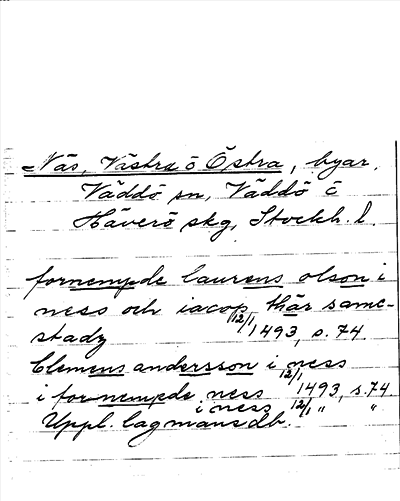 Näs, Västra o Östra, byar,
Väddö sn, Väddö o
Häverö skg, Stockh. l.
fornempde laurens olson i
ness och iacop thär same-
stadz 12/1 1493, s. 74.
Clemens andersson i ness
12/1 1493, s. 74
i fornempde ness
i ness 12/1 " "
Uppl. lagmansdb.